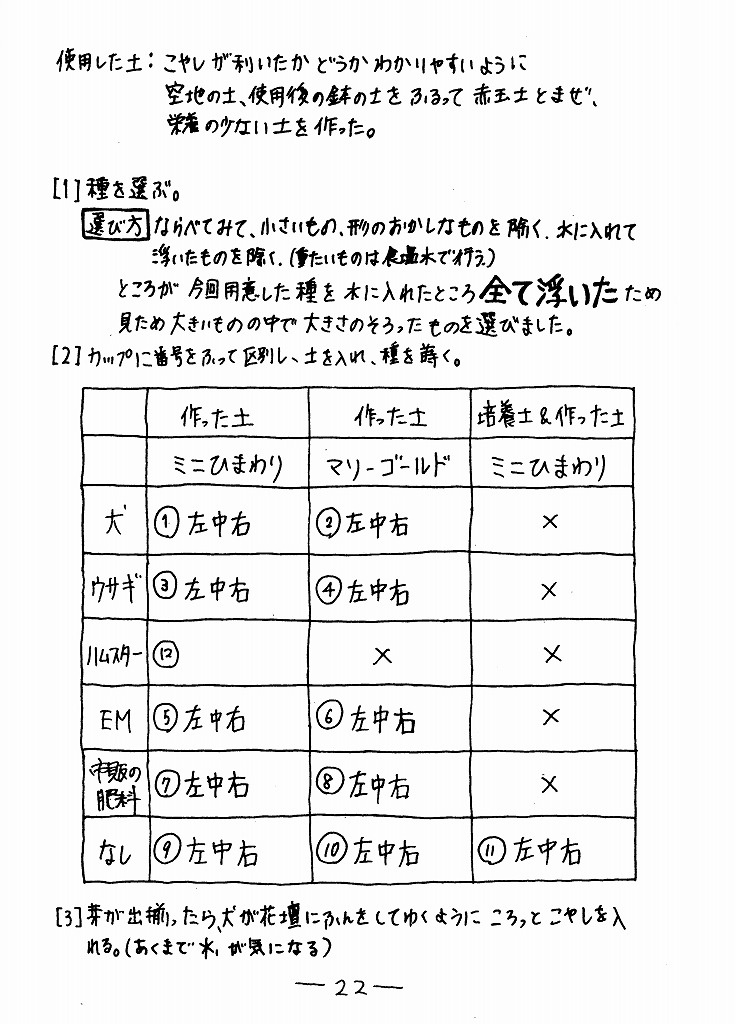 使用した土：こやしが利いたかどうかわかりやすいように
空地の土、使用後の鉢の土をふるって赤玉土とまぜ、
栄養の少ない土を作った。
[1]種を選ぶ。
選び方 ならべてみて、小さいもの、形のおかしなものを除く．水に入れて
浮いたものを除く．(重たいものは食塩水で行う。)
ところが今回用意した種を水に入れたところ全て浮いたため
見ため大きいものの中で大きさのそろったものを選びました。
[2]カップに番号をふって区別し、土を入れ、種を蒔く。
作った土 作った土 培養土&作った土
ミニひまわり マリーゴールド ミニひまわり
犬 ①左中右 ②左中右 ×
ウサギ ③左中右 ④左中右 ×
ハムスター ⑫ × ×
EM ⑤左中右 ⑥左中右 ×
市販の
肥料 ⑦左中右 ⑧左中右 ×
なし ⑨左中右 ⑩左中右 ⑪左中右
[3]芽が出揃ったら、犬が花壇にふんをしてゆくようにころっとこやしを入
れる。(あくまで犬が気になる)
—22—